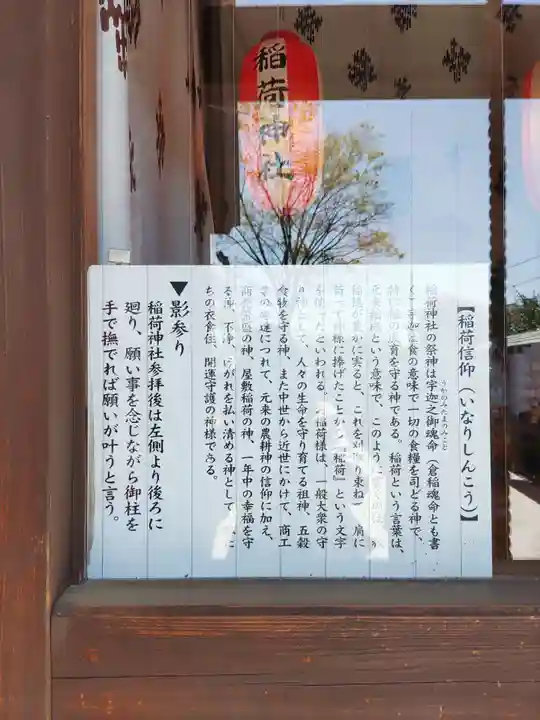 稲荷神社
【稲荷信仰(いなりしんこう)】
稲荷神社の祭神は宇迦之御魂命(倉稲魂命とも書
うかのみたまのみこと
は食の意味で一切の食糧を司どる神で、
育を守る神である。稲荷という言葉は、
元来稲
という意味で、このよう
稲穂が豊かに実ると、これを刈り束ね
肩に
荷って神様に捧げたことから『稲荷』という文字
たといわれる。
稲荷様は、一般大衆の守
して、人々の生命を守り育てる祖神、五穀
食物を守る神、また中世から近世にかけて、商工
達につれて、元来の農耕神の信仰に加え、
の神、屋敷稲荷の神、一年中の幸福を守
る神、不浄、けがれを払い清める神として
ちの衣食住、開運守護の神様である。
▼影参り
稲荷神社参拝後は左側より後ろに
廻り、願い事を念じながら御柱を
手で撫でれば願いが叶うと言う。